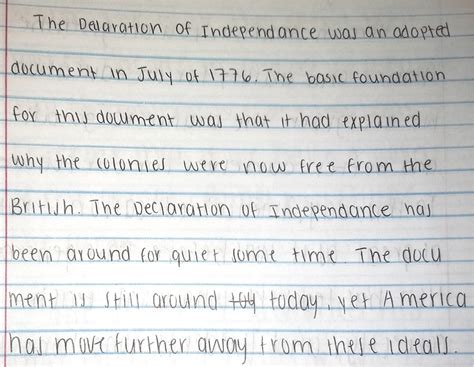 The Delaration of Independance was an adopted
document in July of 1776. The basic foundation
for this document was that it had explained
why the colonies were now free from the
British. The Declaration of Independance has
been around for quiet some time The docu
ment is still around today, yet America
has move further away from these ideals.